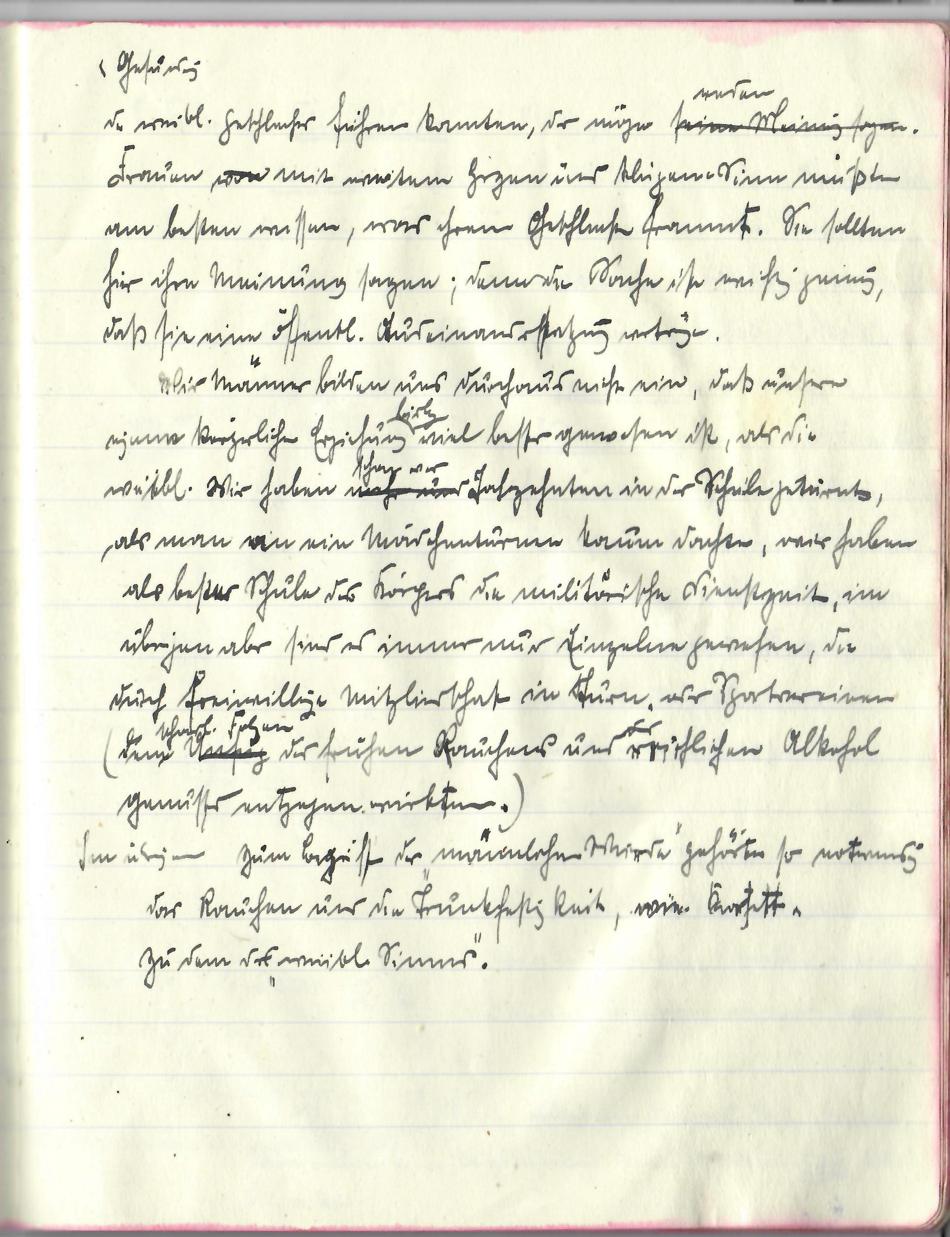 Gesundg
der weibl. Geschlechter führen könnten, der möge reden
seine Meinung sagen.
Frauen von mit weitem Herzen und klugem Sinn müßten
am besten wissen, was ihrem Geschlecht frommt. Sie sollten
hier ihre Meinung sagen; denn die Sache ist wichtig genug,
daß sie eine öffentl. Auseinandersetzung vertrüge.
Wir Männer bilden uns durchaus nicht ein, daß unsere
eigene körperliche Erziehung viel besser gewesen ist, als die
weibl. Wir haben schon vor Jahrzehnten in der Schule geturnt,
als man an ein Mädchenturnen kaum dachte, wir haben
als beste Schule des Körpers die militärische Dienstzeit, im
übrigen aber sind es immer nur Einzelne gewesen, die
durch freiwillige Mitgliedschaft in Turn- oder Sportvereinen
(den schädl. Folgen des frühen Rauchens und oder reichlichen Alkohol
genusses entgegen wirkten.)
Im übrigen zum Begriff der "männlichen Würde" gehörte so notwendig
das Rauchen und die "Trunkfestigkeit, wie Korsett
zu dem des "weibl. Sinns".